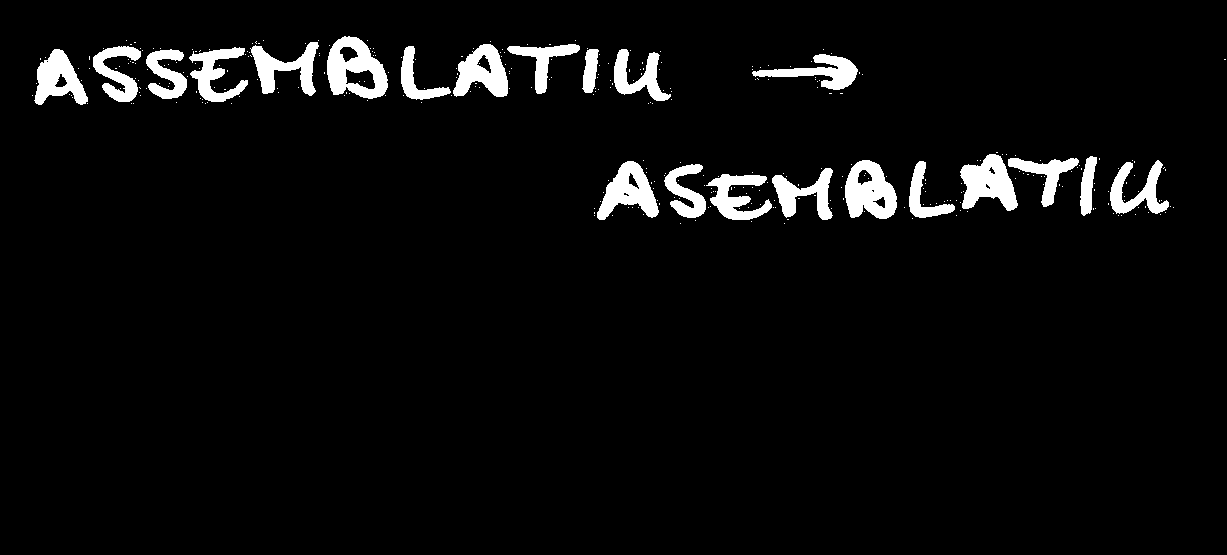 ASSEMBLATIU →
ASEMBLATIU